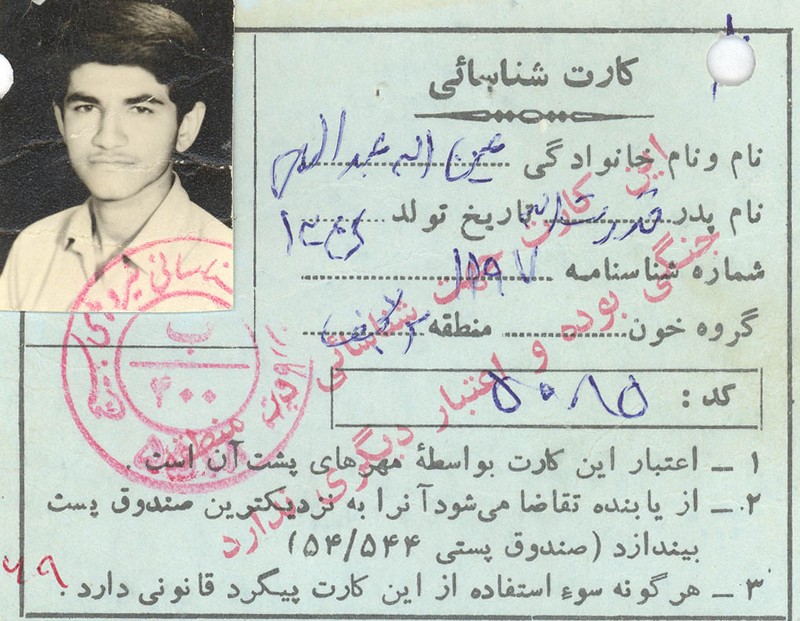 کارت شناسائی
نام و نام خانوادگی عین اله عبدالهی
نام پدر قدرت اله تاریخ تولد
شماره شناسنامه ۱۱۹۷
گروه خون منطقه
کد : ۵۰۸۵
۱ – اعتبار این کارت بواسطهٔ مهرهای پشت آن است .
۲ – از یابنده تقاضا می‌شود آنرا به نزدیکترین صندوق پست
بیندازد (صندوق پستی ۵۴/۵۴۴)
۳ – هرگونه سوءِ استفاده از این کارت پیگرد قانونی دارد .
این کارت جهت شناسائی
جنگی بوده و اعتبار دیگری ندارد
ب
۴۰۰
۶۹